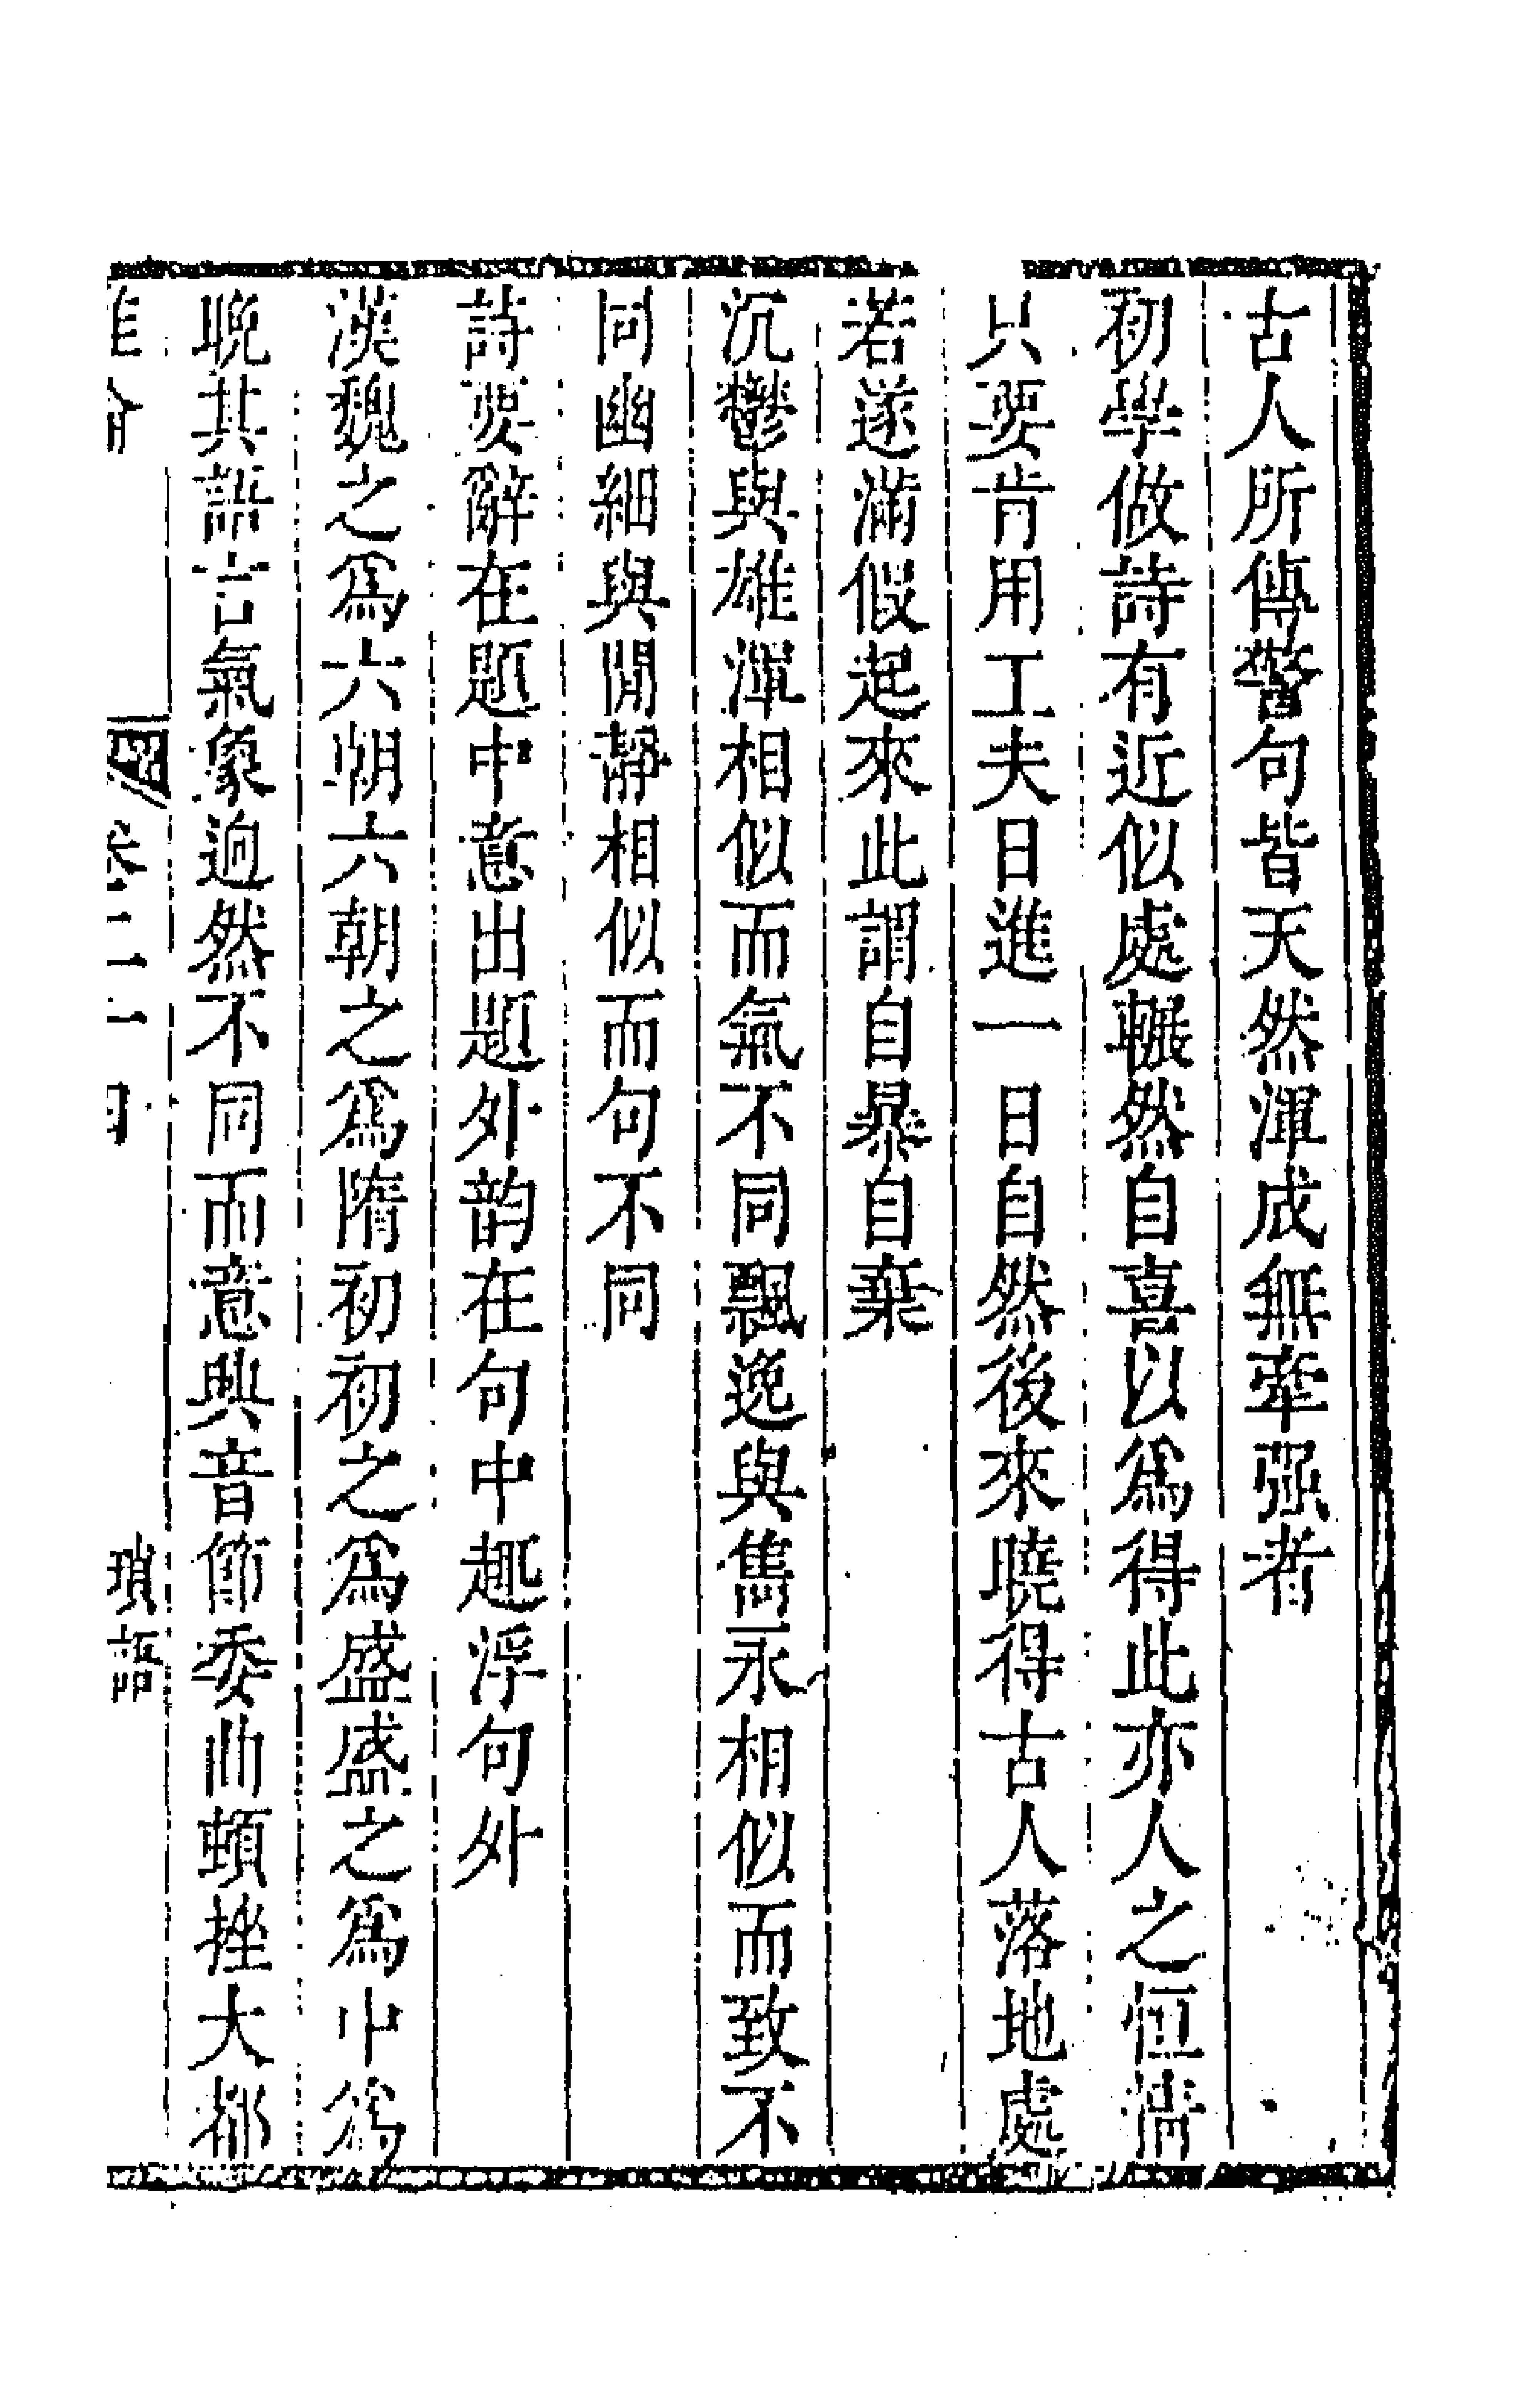 古人所傳警句皆天然渾成無牽强者
初學做詩有近似處輾然自喜以爲得此亦人之恒情
只要肯用工夫日進一日自然後來曉得古人落地處
若遂滿假起來此謂自暴自棄
沉鬱與雄渾相似而氣不同飄逸與雋永相似而致不
同幽細與閒靜相似而句不同
詩要辭在題中意出題外韵在句中趣浮句外
漢魏之爲六朝六朝之爲隋初初之爲盛盛之爲中爲
晚其語言氣象迥然不同而意興音節委曲頓挫大都
卷二 瑣語